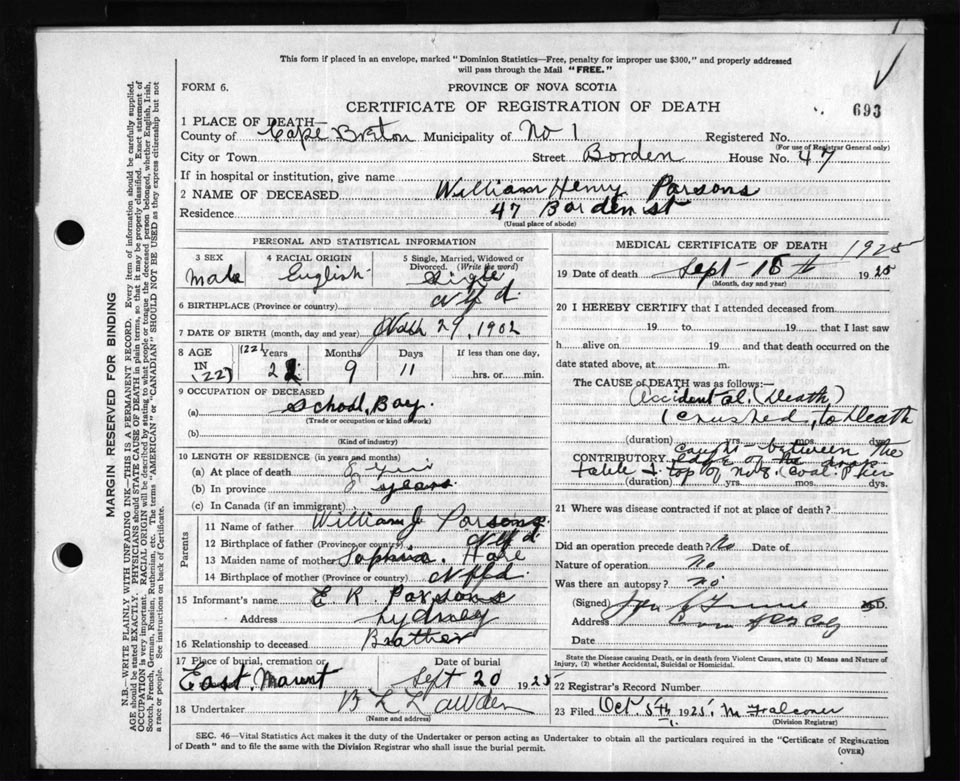 This form if placed in an envelope, marked "Dominion Statistics—Free, penalty for improper use $300," and properly addressed
will pass through the Mail "FREE."
FORM 6.
PROVINCE OF NOVA SCOTIA
CERTIFICATE OF REGISTRATION OF DEATH
693
1 PLACE OF DEATH—
County of Cape Breton Municipality of No 1 Registered No.
(For use of Registrar General only)
City or Town Street Borden House No. 47
If in hospital or institution, give name
2 NAME OF DECEASED William Henry Parsons
Residence 47 Borden st
(Usual place of abode)
PERSONAL AND STATISTICAL INFORMATION
3 SEX
Male
4 RACIAL ORIGIN
English
5 Single, Married, Widowed or
Divorced. (Write the word)
Sigle
6 BIRTHPLACE (Province or country) Nfd.
7 DATE OF BIRTH (month, day and year) 29, 1902
8 AGE IN
(22)
(22) Years
22
Months
9
Days
11
If less than one day,
hrs. or min.
9 OCCUPATION OF DECEASED
(a) School, Boy.
(Trade or occupation or kind of work)
(b)
(Kind of industry)
10 LENGTH OF RESIDENCE (in years and months)
(a) At place of death 8
(b) In province 8 years
(c) In Canada (if an immigrant)
Parents
11 Name of father William J Parsons
12 Birthplace of father (Province or country) Nfd
13 Maiden name of mother Sophia
14 Birthplace of mother (Province or country) Nfld.
15 Informant's name E R Parsons
Address Sydney
16 Relationship to deceased Brother
17 Place of burial, cremation or
East Mount
Date of burial
Sept 20 1925
18 Undertaker
(Name and address)
MEDICAL CERTIFICATE OF DEATH 1925
19 Date of death Sept 15th 1925
(Month, day and year)
20 I HEREBY CERTIFY that I attended deceased from
19 to 19 that I last saw
h alive on 19 and that death occurred on the
date stated above, at m.
The CAUSE OF DEATH was as follows:—
Accidental (Death)
(crushed, to Death
(duration) yrs. mos. dys.
caught between the
CONTRIBUTORY edge of the
table & top of No 2 Coal Pier
(duration) yrs. mos. dys.
21 Where was disease contracted if not at place of death?
Did an operation precede death? No Date of
Nature of operation No
Was there an autopsy? No
(Signed) M.D.
Address
Date
State the Disease causing Death, or in death from Violent Causes, state (1) Means and Nature of
Injury, (2) whether Accidental, Suicidal or Homicidal.
22 Registrar's Record Number
23 Filed Oct. 5th 1925. M Falconer
(Division Registrar)
SEC. 46—Vital Statistics Act makes it the duty of the Undertaker or person acting as Undertaker to obtain all the particulars required in the "Certificate of Registration
of Death" and to file the same with the Division Registrar who shall issue the burial permit.
(OVER)
MARGIN RESERVED FOR BINDING
N.B.—WRITE PLAINLY WITH UNFADING INK—THIS IS A PERMANENT RECORD. Every item of information should be carefully supplied.
AGE should be stated EXACTLY. PHYSICIANS should STATE CAUSE OF DEATH in plain terms, so that it may be properly classified. Exact statement of
OCCUPATION is very important. RACIAL ORIGIN will be described by stating to what people or tongue the deceased person belonged, whether English, Irish,
Scotch, French, German, Russian, Ruthenian, etc. The terms "AMERICAN" or "CANADIAN" SHOULD NOT BE USED as they express citizenship but not
a race or people. See instructions on back of Certificate.